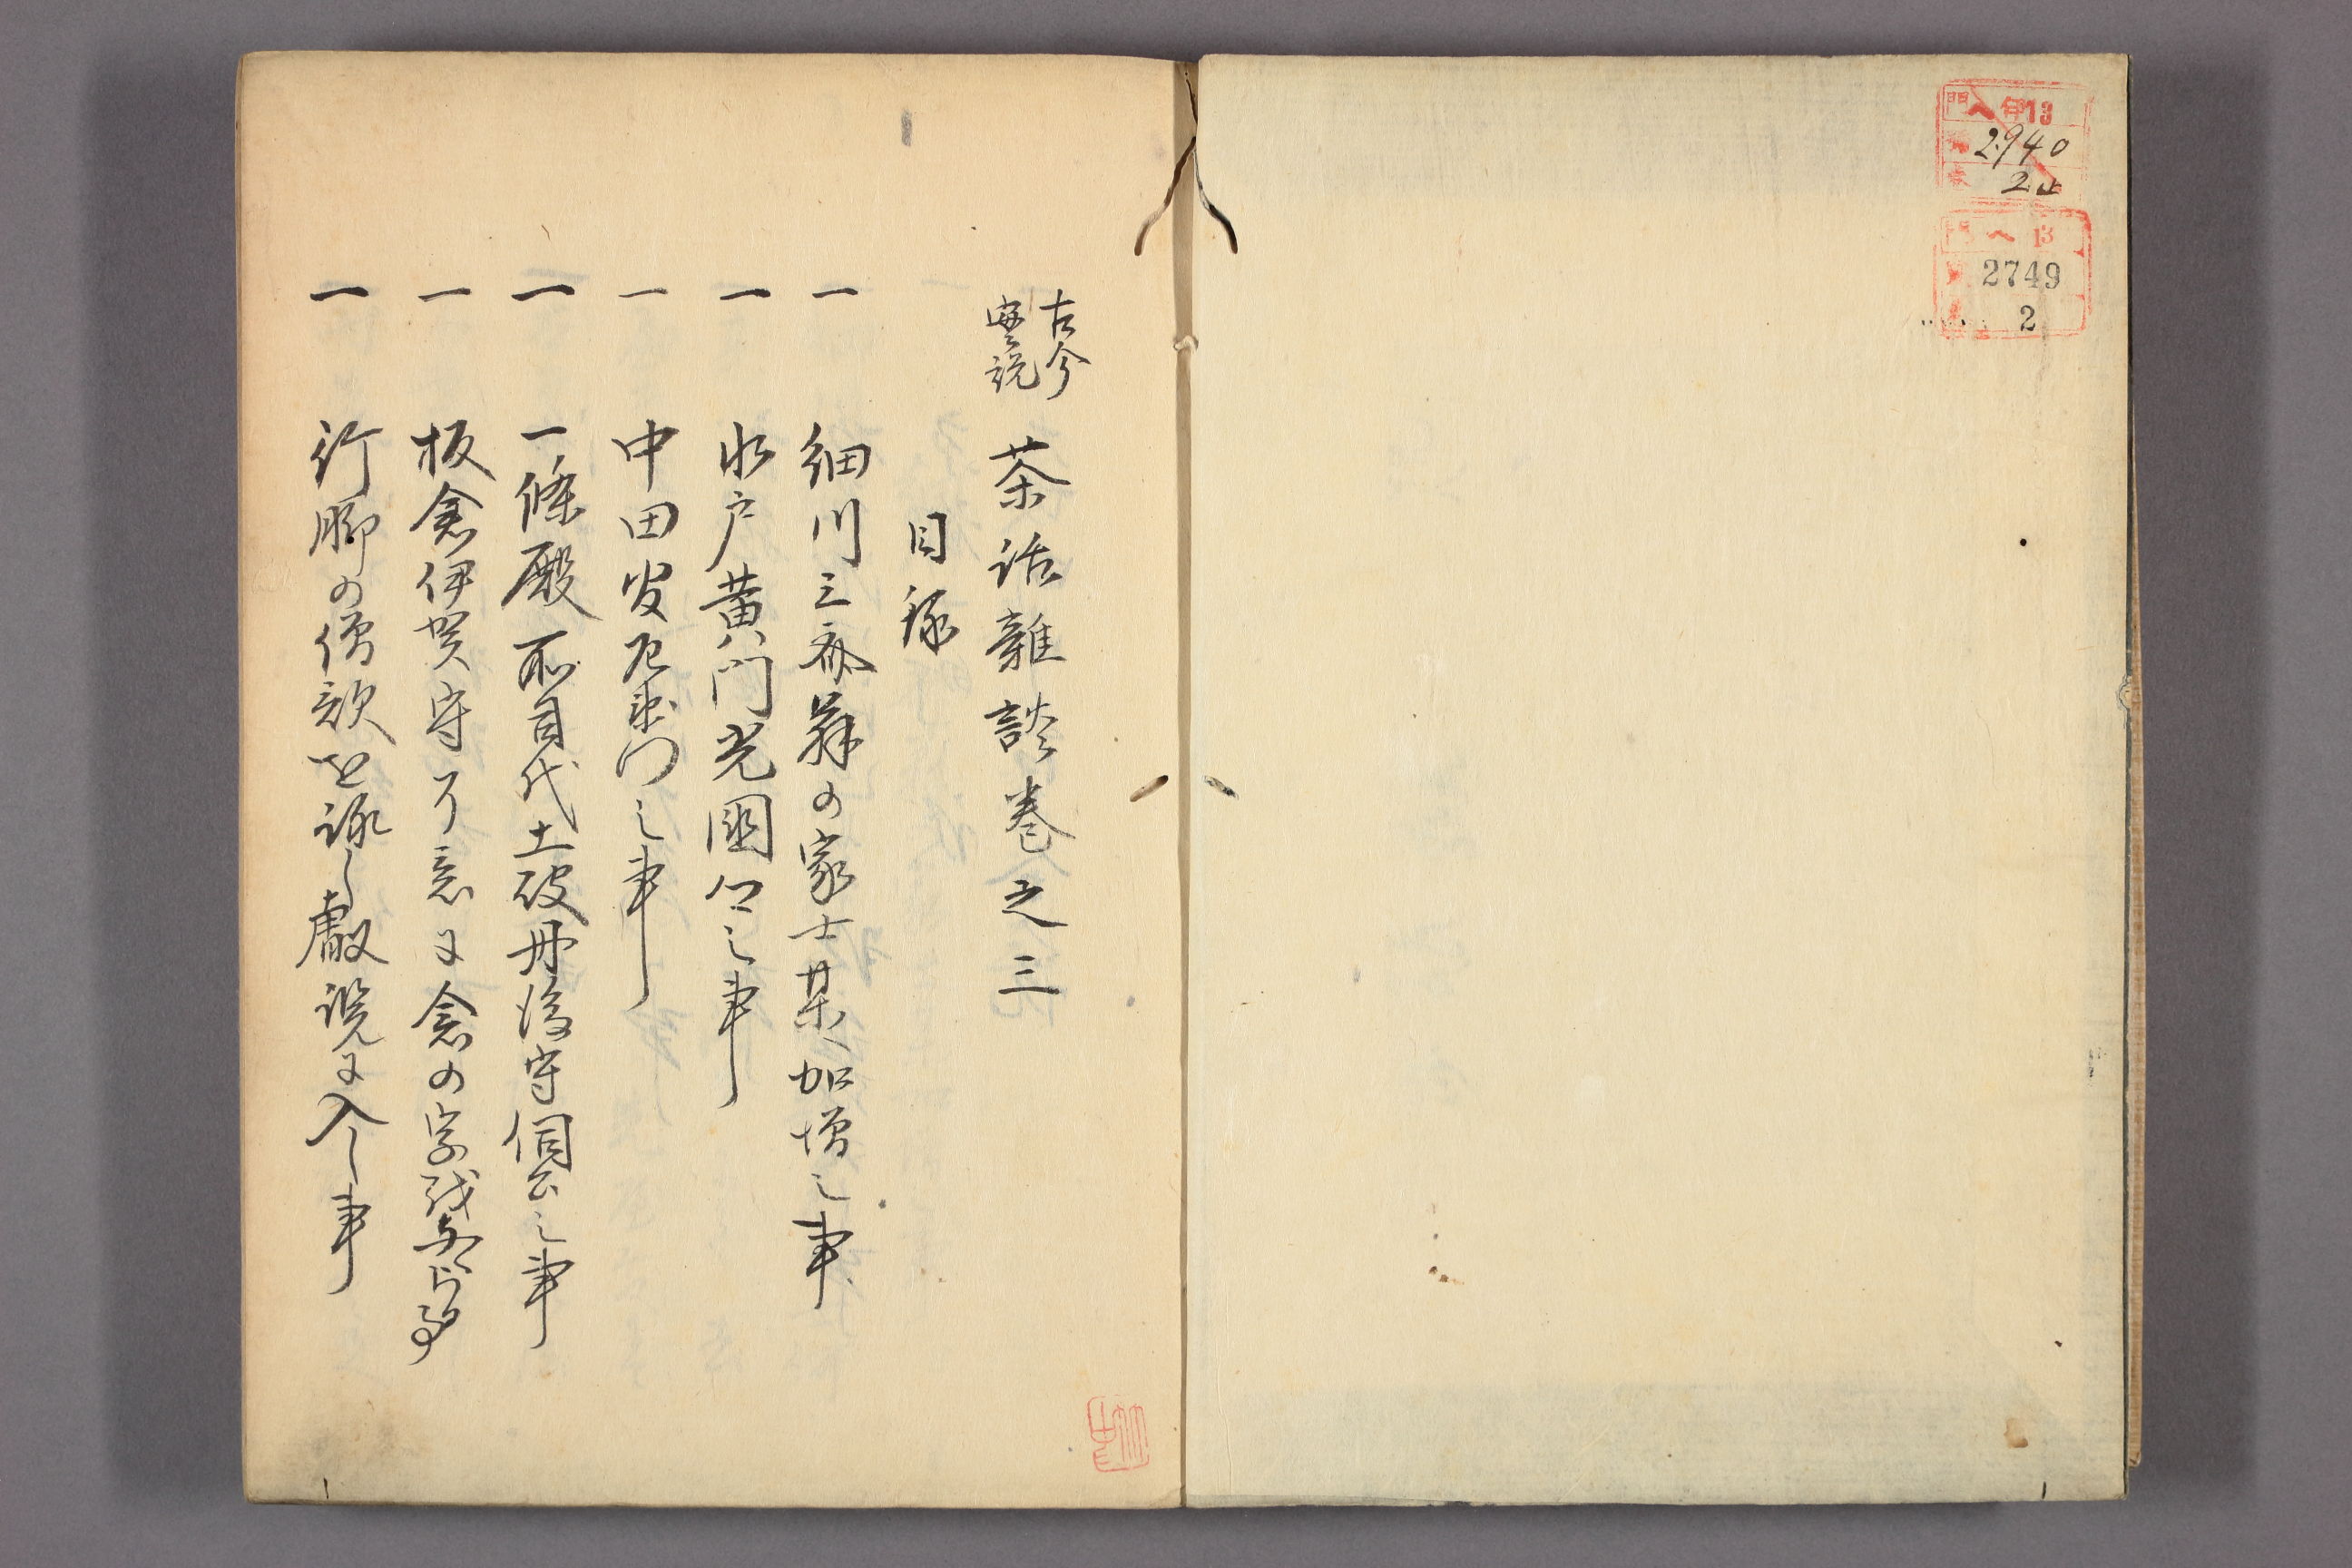 門 ヘ 13
2940
2
門 ヘ 13
2749
2
古今
茶話雜談巻之三
目録
一 細川三斎翁の家士某加増之事
一 水戸黄門光圀公之事
一 中田左衛門之事
一 一條殿所目代土破丹後守伺公之事
一 板倉伊賀守了意に倉の字或
一 行脚の僧歌を詠し叡覧に入し事